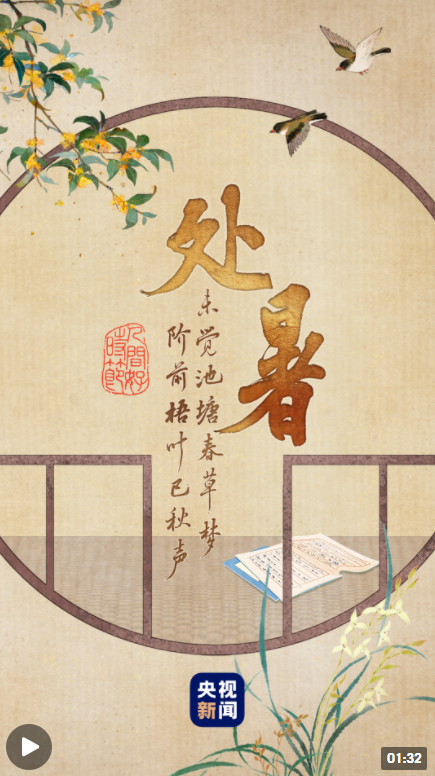 处暑
未觉池塘春草梦
阶前梧叶已秋声
人間好
時節
央视
新闻
01:32